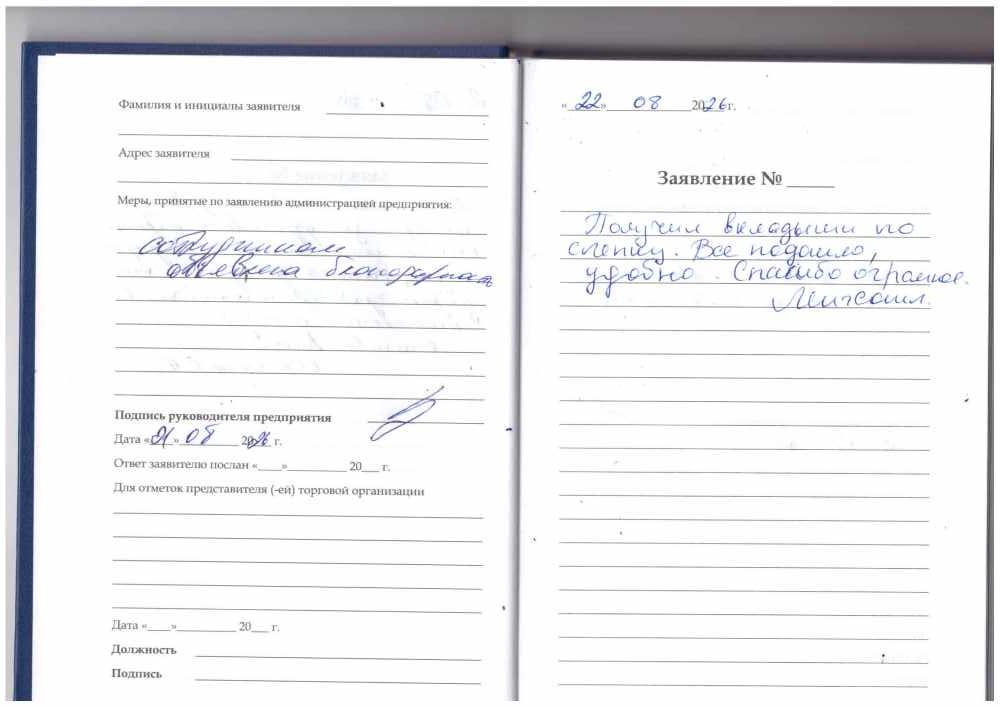 Фамилия и инициалы заявителя
Адрес заявителя
Меры, принятые по заявлению администрацией предприятия:
сотрудникам
объявлена благодарность
Подпись руководителя предприятия
Дата «21» 08 2026 г.
Ответ заявителю послан «____»__________ 20___ г.
Для отметок представителя (-ей) торговой организации
Дата «____»__________ 20___ г.
Должность
Подпись
«22» 08 2026 г.
Заявление № _____
Получил вкладыши по
слепку. Все подошло,
удобно. Спасибо огромное.
Михаил.